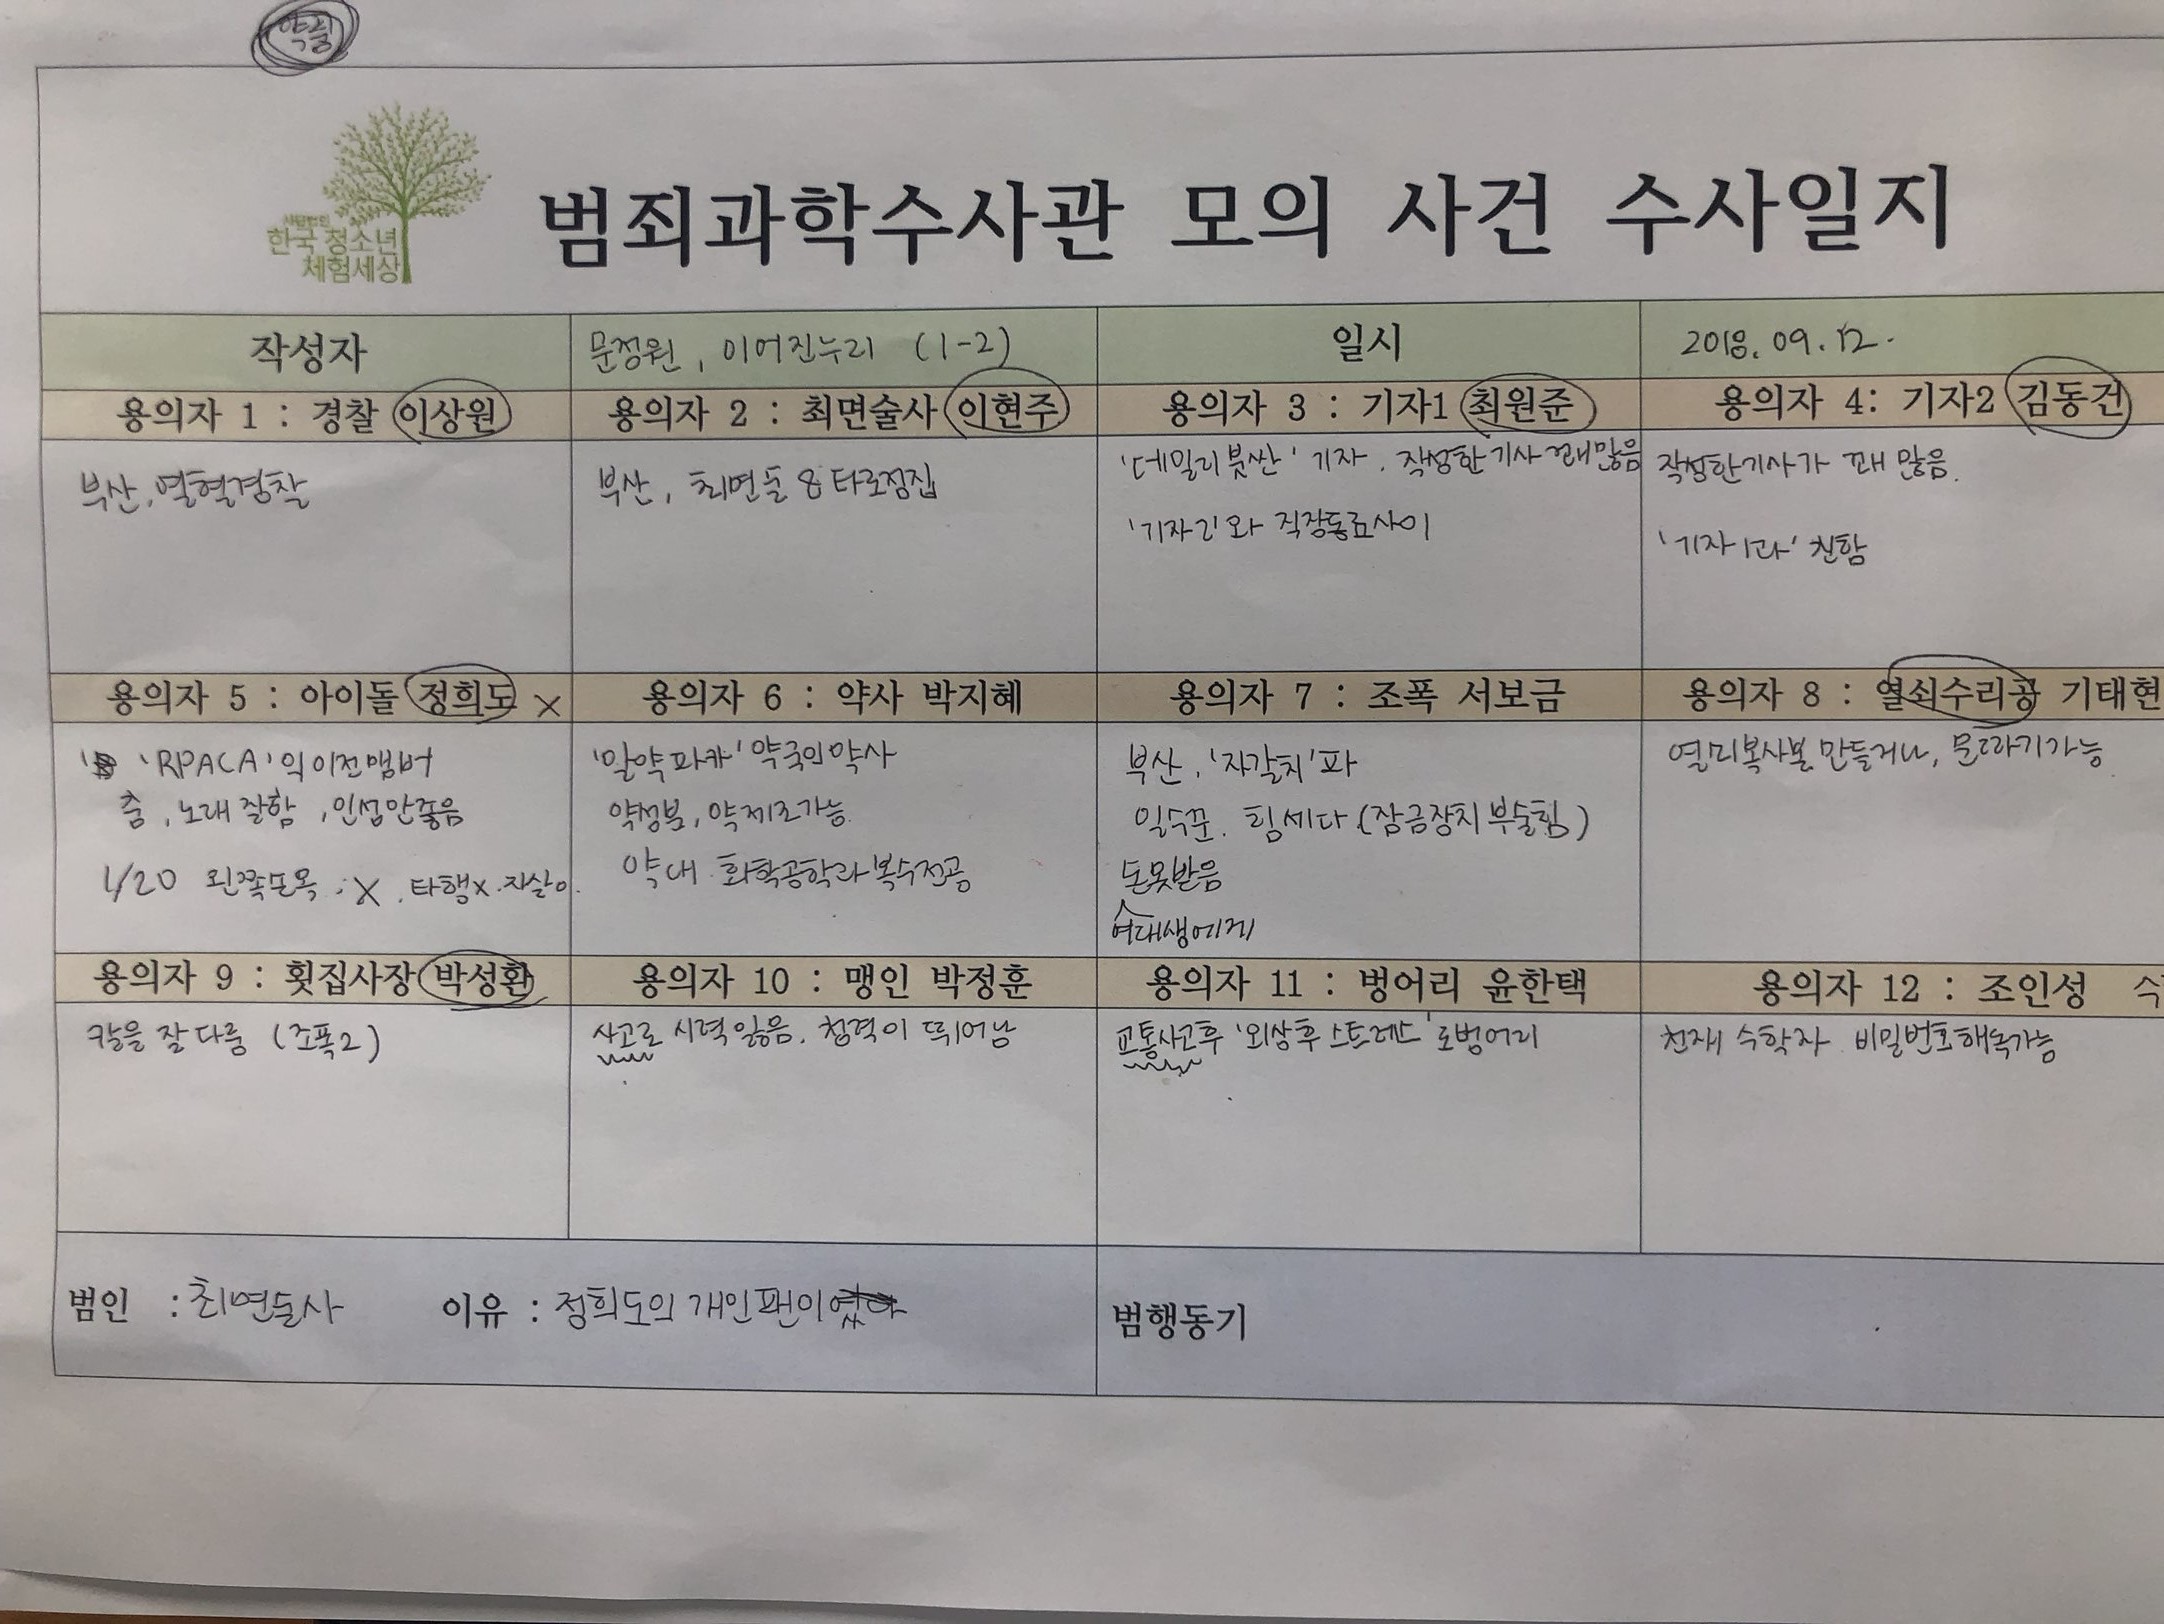 약품
사단법인
한국 청소년
체험세상
범죄과학수사관 모의 사건 수사일지
작성자 문정원, 이어진누리 (1-2) 일시 2018. 09. 12.
용의자 1 : 경찰 이상원 용의자 2 : 최면술사 이현주 용의자 3 : 기자1 최원준 용의자 4: 기자2 김동건
부산, 열혈경찰
부산, 최면술 & 타로점집
'데일리붓싼' 기자. 작성한 기사 꽤 많음
'기자2'와 직장동료사이
작성한기사가 꽤 많음.
'기자1과' 친함
용의자 5 : 아이돌 정희도 X 용의자 6 : 약사 박지혜 용의자 7 : 조폭 서보금 용의자 8 : 열쇠수리공 기태현
'RPACA'의 이전멤버
춤, 노래 잘함, 인성안좋음
1/20 왼쪽손목 X. 타행X. 자살
'말약파카' 약국의 약사
약성분, 약제조가능.
약대 화학공학과 복수전공
부산, '자갈치'파
일수꾼. 힘세다 (잠금장치 부술힘)
돈못받음
여대생에게
열쇠복사본 만들거나, 문따기가능
용의자 9 : 횟집사장 박성환 용의자 10 : 맹인 박정훈 용의자 11 : 벙어리 윤한택 용의자 12 : 조인성 수
칼을 잘 다룸 (조폭2)
사고로 시력 잃음. 청력이 뛰어남
교통사고후 '외상후 스트레스'로 벙어리
천재 수학자 비밀번호해독가능
범인 : 최면술사 이유 : 정희도의 개인팬이였다
범행동기